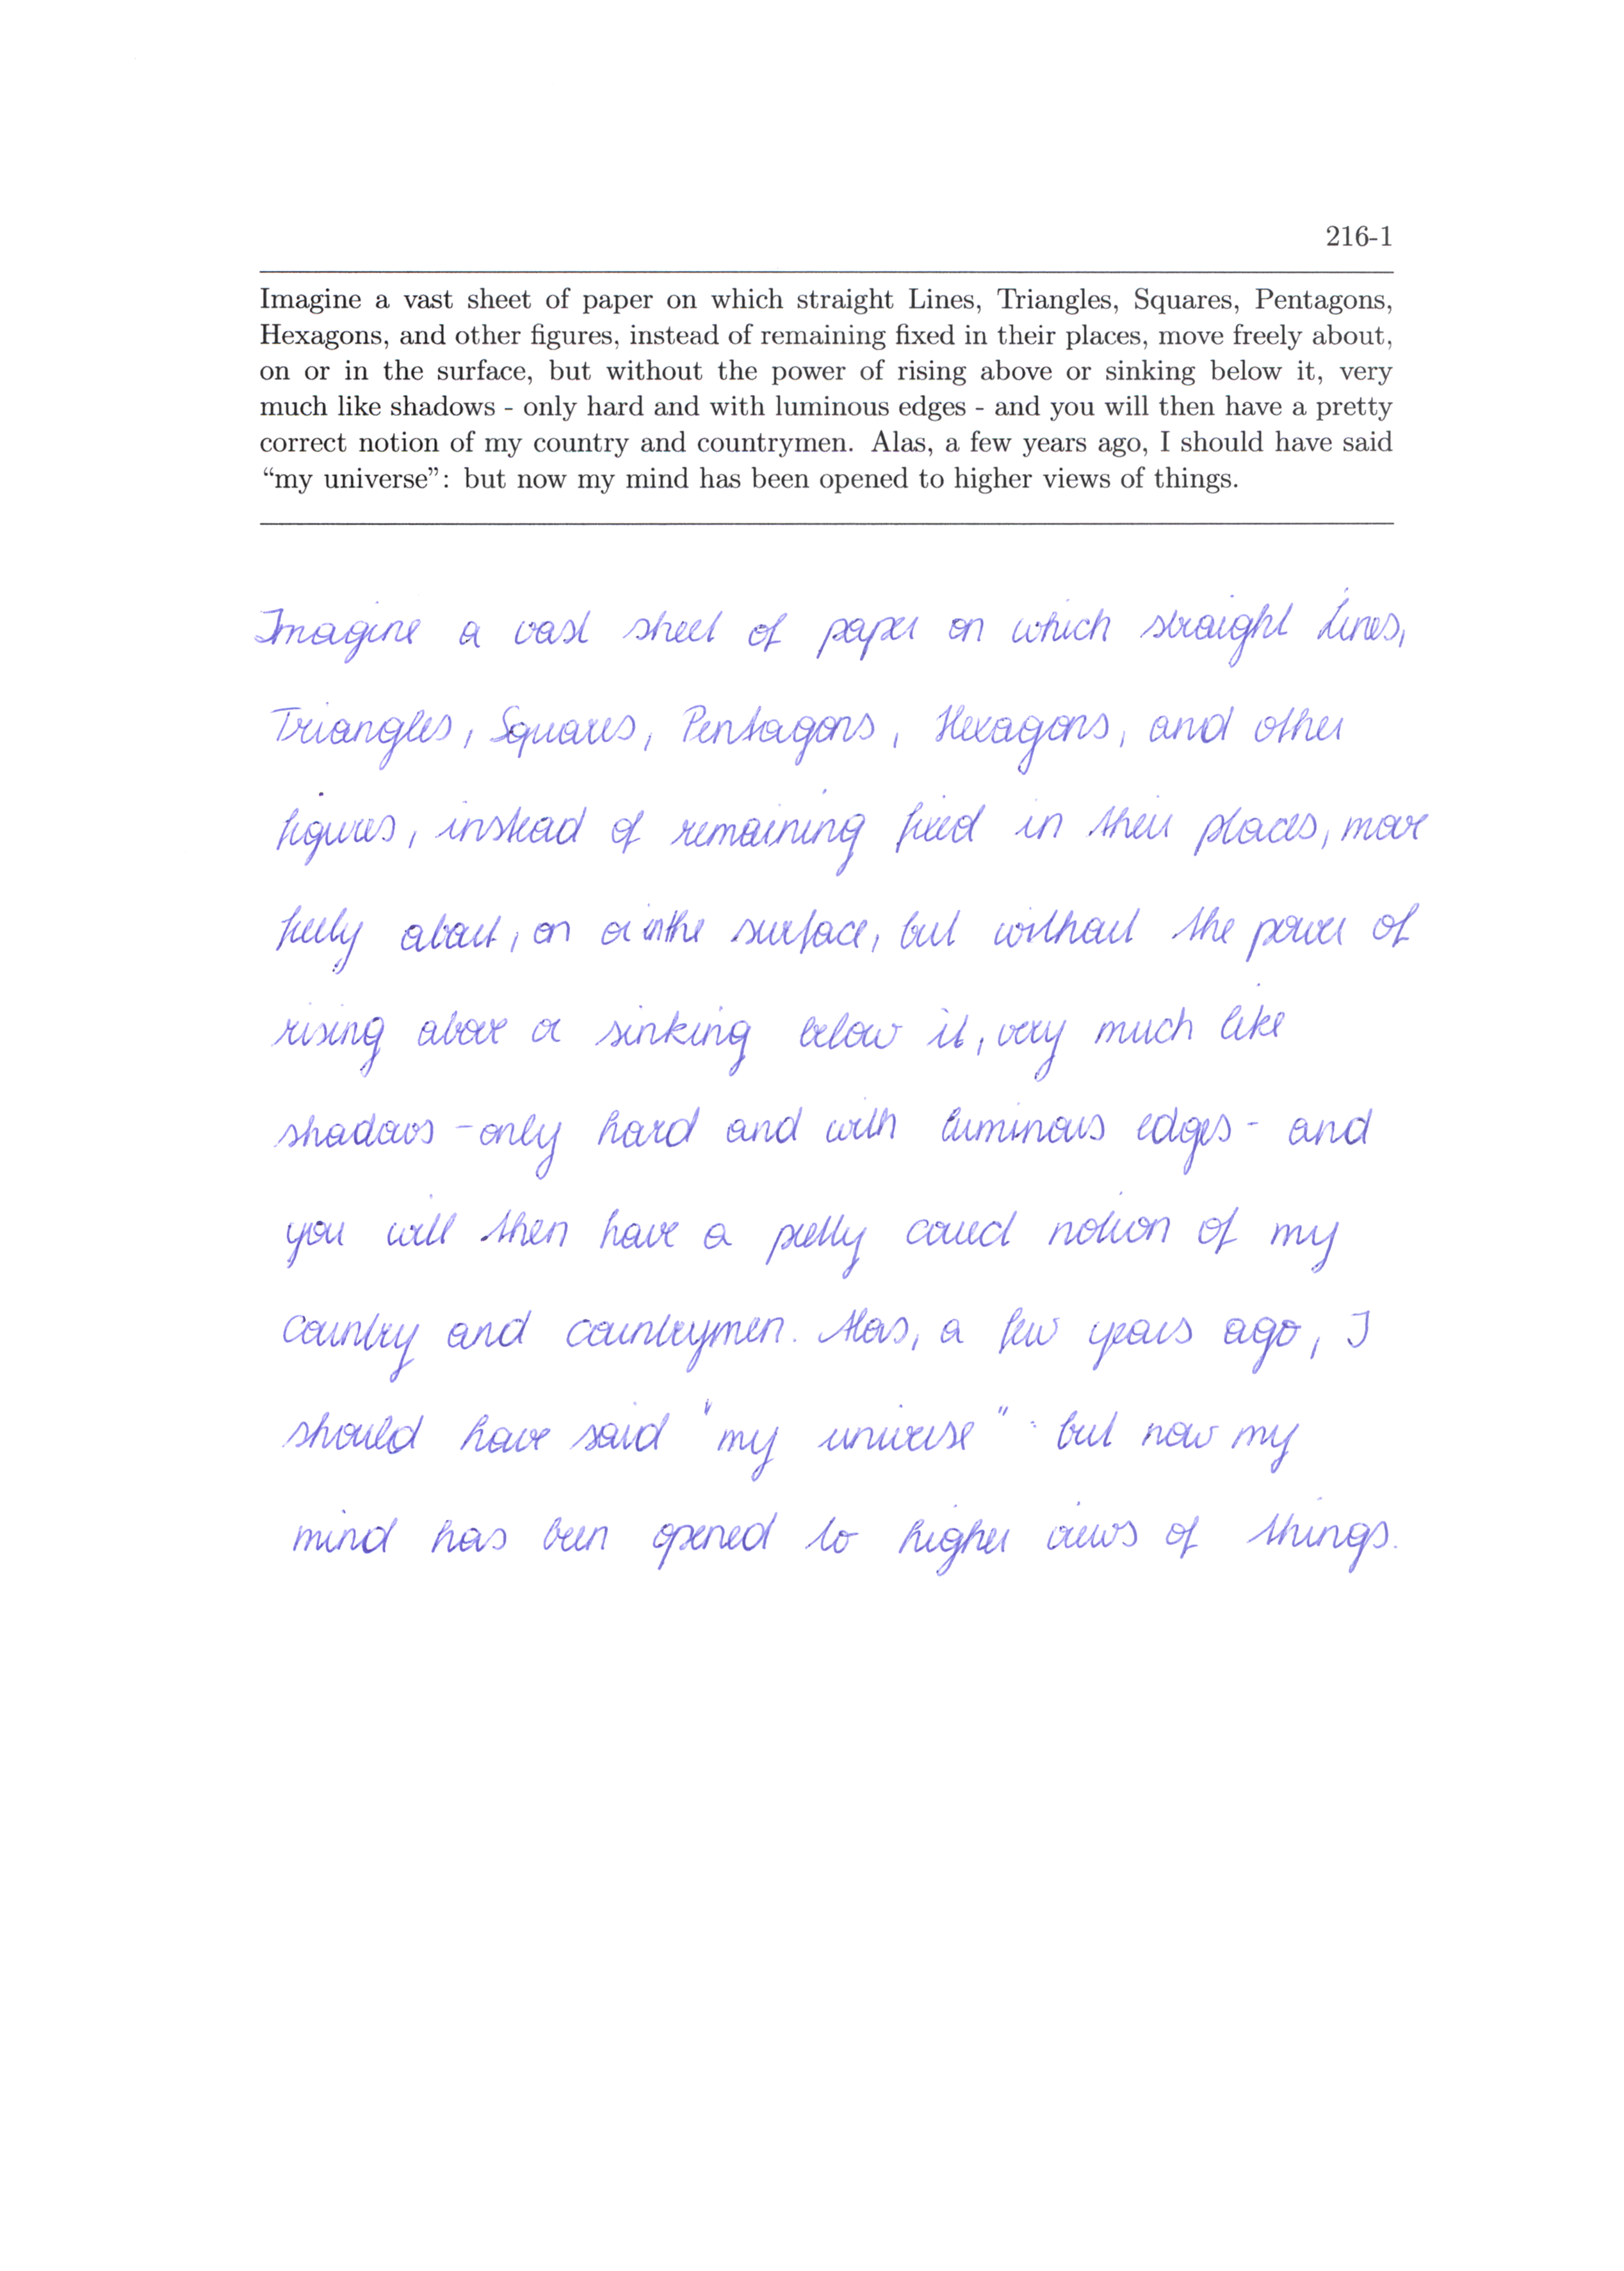 216-1
Imagine a vast sheet of paper on which straight Lines, Triangles, Squares, Pentagons,
Hexagons, and other figures, instead of remaining fixed in their places, move freely about,
on or in the surface, but without the power of rising above or sinking below it, very
much like shadows - only hard and with luminous edges - and you will then have a pretty
correct notion of my country and countrymen. Alas, a few years ago, I should have said
“my universe”: but now my mind has been opened to higher views of things.
Imagine a vast sheet of paper on which straight Lines,
Triangles, Squares, Pentagons, Hexagons, and other
figures, instead of remaining fixed in their places, move
freely about, on or in the surface, but without the power of
rising above or sinking below it, very much like
shadows - only hard and with luminous edges - and
you will then have a pretty correct notion of my
country and countrymen. Alas, a few years ago, I
should have said "my universe": but now my
mind has been opened to higher views of things.